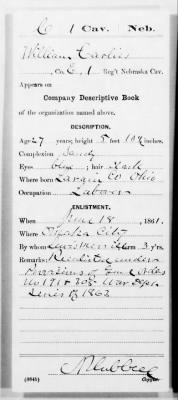 C | 1 Cav. | Neb.
William Carlin
, Co. C, 1 Reg't Nebraska Cav.
Appears on
Company Descriptive Book
of the organization named above.
DESCRIPTION.
Age 27 years; height 5 feet 10½ inches.
Complexion Sandy
Eyes blue ; hair Dark
Where born Co. Ohio
Occupation Laborer
ENLISTMENT.
When June 18, 1861.
Where City
By whom term 3 yrs.
Remarks: Reenlisted under
Provisions of Orders
No 191 & War Dept
Series of 1863
(384b) Copyist.